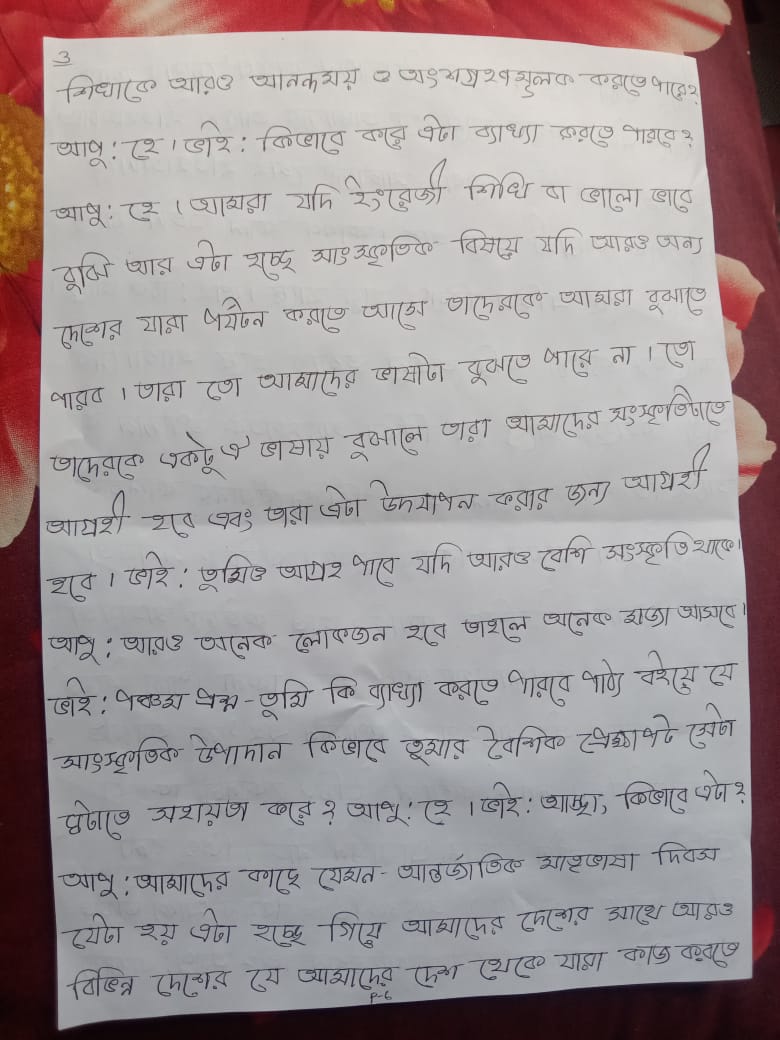 3
শিখাকে আরও আনন্দময় ও অংশগ্রহণমূলক করতে পারে?
আপু: হে। ভাই: কিভাবে করে এটা ব্যাখ্যা করতে পারবে?
আপু: হে। আমরা যদি ইংরেজী শিখি বা ভালো ভাবে
বুঝি আর এটা হচ্ছে সাংস্কৃতিক বিষয়ে যদি আরও অন্য
দেশের যারা পর্যটন করতে আসে তাদেরকে আমরা বুঝাতে
পারব। তারা তো আমাদের ভাষাটা বুঝতে পারে না। তো
তাদেরকে একটু ঐ ভাষায় বুঝালে তারা আমাদের সংস্কৃতিটাতে
আগ্রহী হবে এবং তারা এটা উদযাপন করার জন্য আগ্রহী
হবে। ভাই: তুমিও আগ্রহ পাবে যদি আরও বেশি সংস্কৃতি থাকে।
আপু: আরও অনেক লোকজন হবে তাহলে অনেক মজা আসবে।
ভাই: পঞ্চম প্রশ্ন - তুমি কি ব্যাখ্যা করতে পারবে পাঠ্য বইয়ে যে
সাংস্কৃতিক উপাদান কিভাবে তুমার বৈশিক প্রেক্ষাপট সেটা
ঘটাতে সহায়তা করে? আপু: হে। ভাই: আচ্ছা, কিভাবে এটা?
আপু: আমাদের কাছে যেমন- আন্তর্জাতিক মাতৃভাষা দিবস
যেটা হয় এটা হচ্ছে গিয়ে আমাদের দেশের সাথে আরও
বিভিন্ন দেশের যে আমাদের দেশ থেকে যারা কাজ করতে
P-6